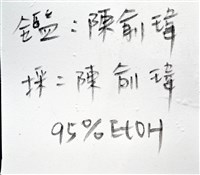 鑑：陳俞瑋
採：陳俞瑋
95%EtOH